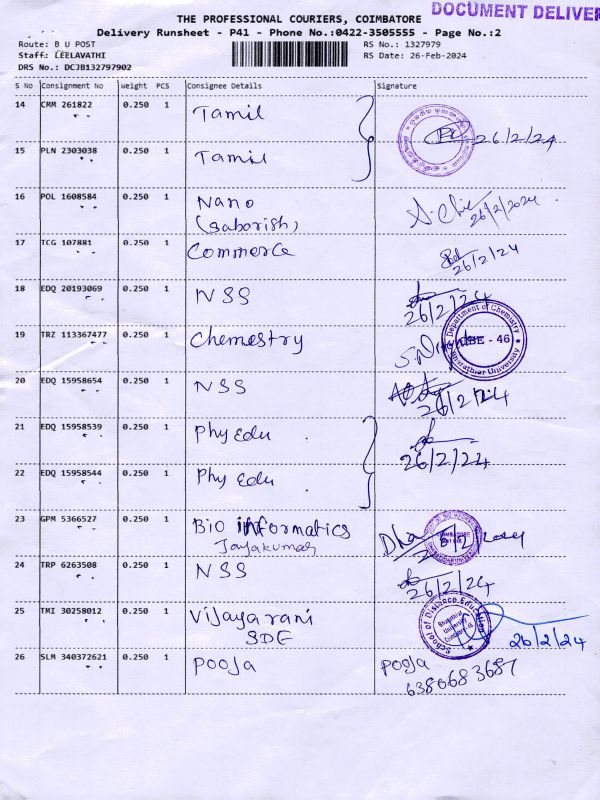 DOCUMENT DELIVER
THE PROFESSIONAL COURIERS, COIMBATORE
Delivery Runsheet - P41 - Phone No.:0422-3505555 - Page No.:2
Route: B U POST RS No.: 1327979
Staff: LEELAVATHI RS Date: 26-Feb-2024
DRS No.: DCJB132797902
S No Consignment No Weight PCS Consignee Details Signature
14 CMM 261822 0.250 1 Tamil
26/2/24
15 PLN 2303038 0.250 1 Tamil
16 POL 1608584 0.250 1 Nano
(Saborish) 26/2/2024
17 TCG 107881 0.250 1 Commerce
26/2/24
18 EDQ 20193069 0.250 1 NSS
26/2/24
19 TRZ 113367477 0.250 1 Chemestry
Department of Chemistry
CBE - 46
Bharathiar University
20 EDQ 15958654 0.250 1 NSS
26/2/24
21 EDQ 15958539 0.250 1 Phy Edu
26/2/24
22 EDQ 15958544 0.250 1 Phy Edu
23 GPM 5366527 0.250 1 Bio informatics
Jayakumar
24 TRP 6263508 0.250 1 NSS
26/2/24
25 TMI 30258012 0.250 1 Vijayarani
SDE
School of Distance Education
Bharathiar
University
26/2/24
26 SLM 340372621 0.250 1 Pooja Pooja
6380683687